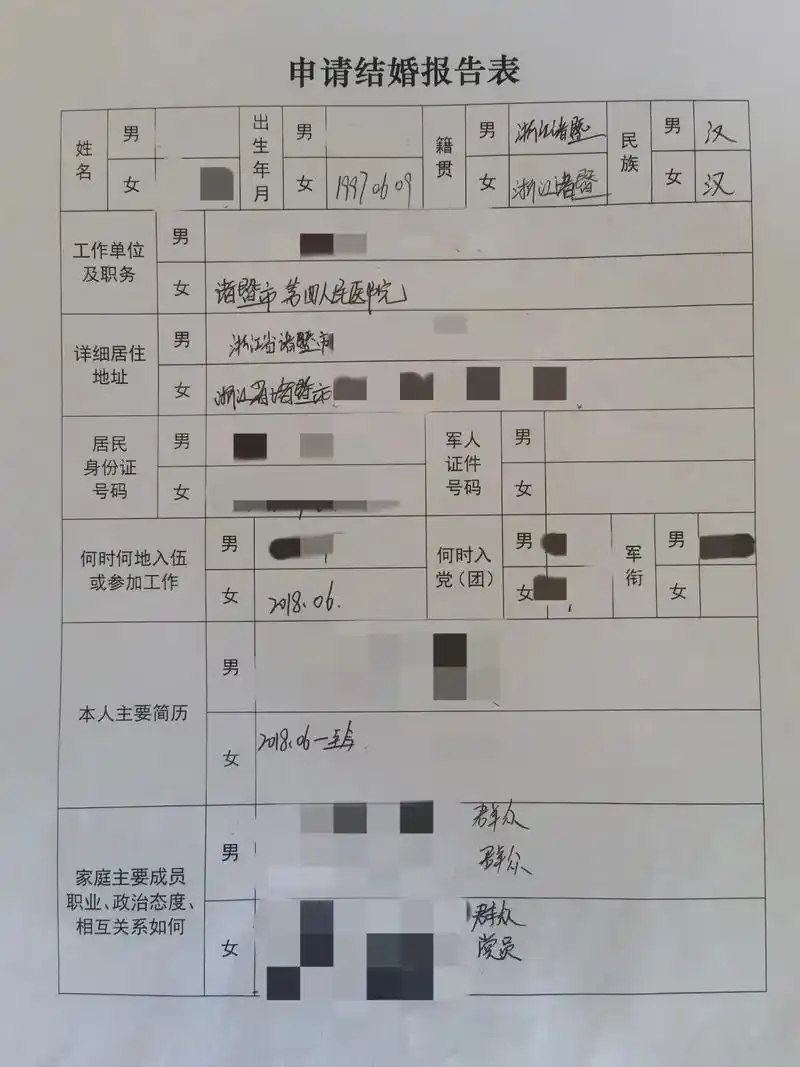 申请结婚报告表
姓名 男 出生年月 男 籍贯 男 浙江诸暨 民族 男 汉
女 女 1997.06.09 女 浙江诸暨 女 汉
工作单位及职务 男
女 诸暨市第四人民医院
详细居住地址 男 浙江省诸暨市
女 浙江省诸暨市
居民身份证号码 男 军人证件号码 男
女 女
何时何地入伍或参加工作 男 何时入党(团) 男 军衔 男
女 2018.06. 女 女
本人主要简历 男
女 2018.06—至今.
家庭主要成员职业、政治态度、相互关系如何 男 群众
群众
女 群众
党员